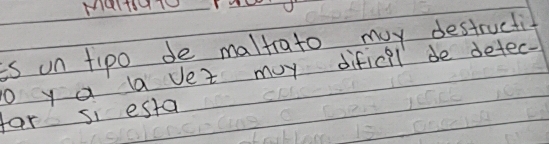 Maltrato
es un tipo de maltrato muy destructi-
vo y a la vez muy dificil de detec-
tar si esta